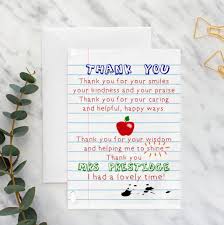 THANK YOU
Thank you for your smiles
your kindness and your praise
Thank you for your caring
and helpful, happy ways
Thank you for your wisdom
and helping me to shine
Thank you
MRS PRESTIDGE
I had a lovely time!